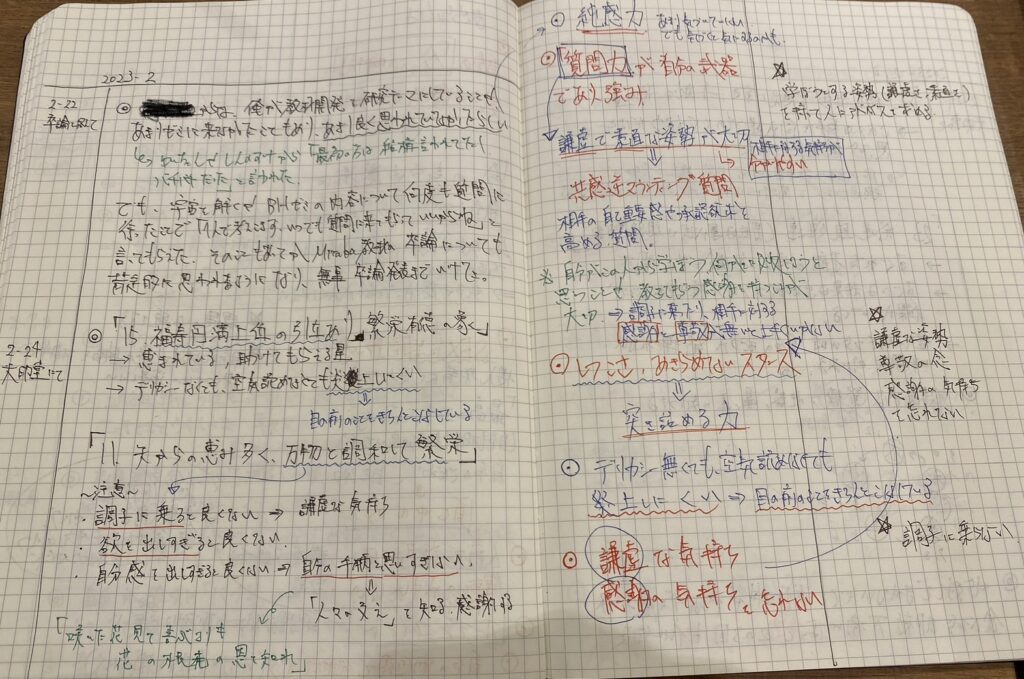 2023-2
2-22
卒論に関して
⊙ からは、俺が教材開発を研究テーマにしていることや
あまりゼミに来なかったこともあり、あまり良く思われていなかったらしい
「最初の方は結構言われてたし
と言われた。
でも、宇宙を解くやBHゼミの内容について何度も質問に
行ったことで「1人で考えこまず、いつでも質問に来てもらっていいからね」と
言ってもらえた。そのこともあってか 教材の卒論についても
肯定的に思われるようになり、無事 卒論発表までいけた。
2-24
大明堂にて
◎「15. 福寿円満上位の引立あり 繁栄有徳の象」
→ 恵まれている, 助けてもらえる星
→ デリカシーなくても, 空気読めなくても炎上しにくい
⇓
目の前のことをきちんとこなしている
「11. 天からの恵み多く、万物と調和して繁栄」
~注意~
・調子に乗ると良くない ⇒ 謙虚な気持ち
・欲を出しすぎると良くない
・自分感を出しすぎると良くない ⇒ 自分の手柄と思いすぎない
↓
「人々の支え」を知る, 感謝する
「咲いた花見て喜ぶよりも
花の根元の恩を知れ」
⊙ 純感力
⊙「質問力」が自分の武器
であり強み
☆
学ぼうとする姿勢(謙虚で素直で)
謙虚で素直な姿勢が大切
⇓
共感逆マウンティング質問
相手の自己重要感や承認欲求を
高める質問。
※ 自分がこの人から学ぼう 何かを吸収しようと
思うことや、教えてもらう感謝を持つことが
大切 → 調子に乗ったり、相手に対する
感謝や尊敬が無いと上手くいかない
☆
謙虚な姿勢
尊敬の念
感謝の気持ち
を忘れない
⊙ しつこさ, あきらめないスタンス
⇓
突き詰める力
⊙ デリカシー無くても, 空気読めなくても
炎上しにくい ⇒ 目の前のことをきちんとこなしている
☆ 調子に乗らない
⊙ 謙虚な気持ち
感謝の気持ちを忘れない